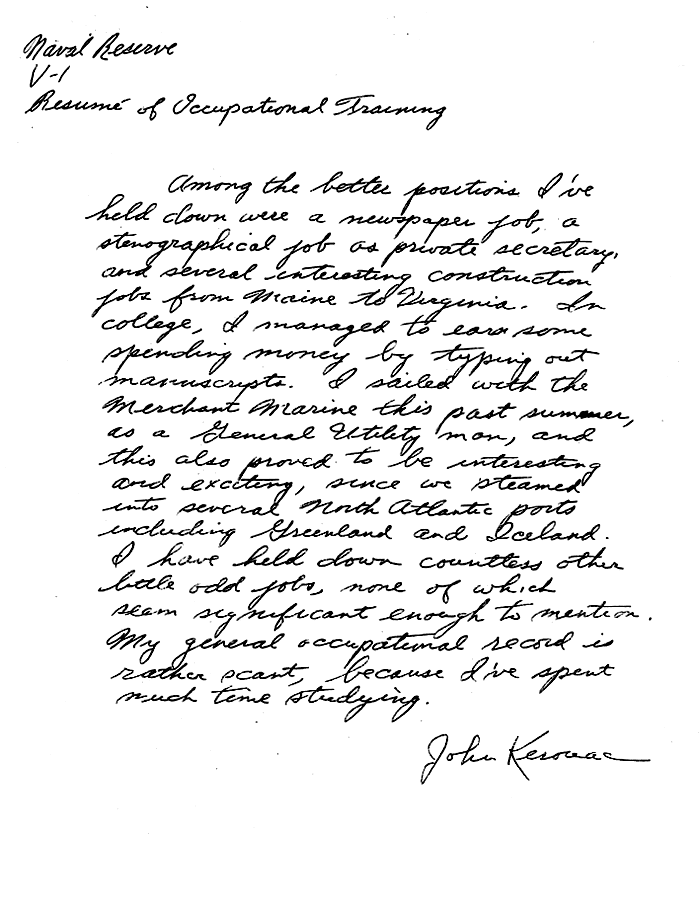 Naval Reserve
V-1
Resumé of Occupational Training
Among the better positions I've
held down were a newspaper job, a
stenographical job as private secretary,
and several interesting construction
jobs from Maine to Virginia. In
college, I managed to earn some
spending money by typing out
manuscripts. I sailed with the
Merchant Marine this past summer,
as a General Utility man, and
this also proved to be interesting
and exciting, since we steamed
into several North Atlantic ports
including Greenland and Iceland.
I have held down countless other
little odd jobs, none of which
seem significant enough to mention.
My general occupational record is
rather scant, because I've spent
much time studying.
John Kerouac